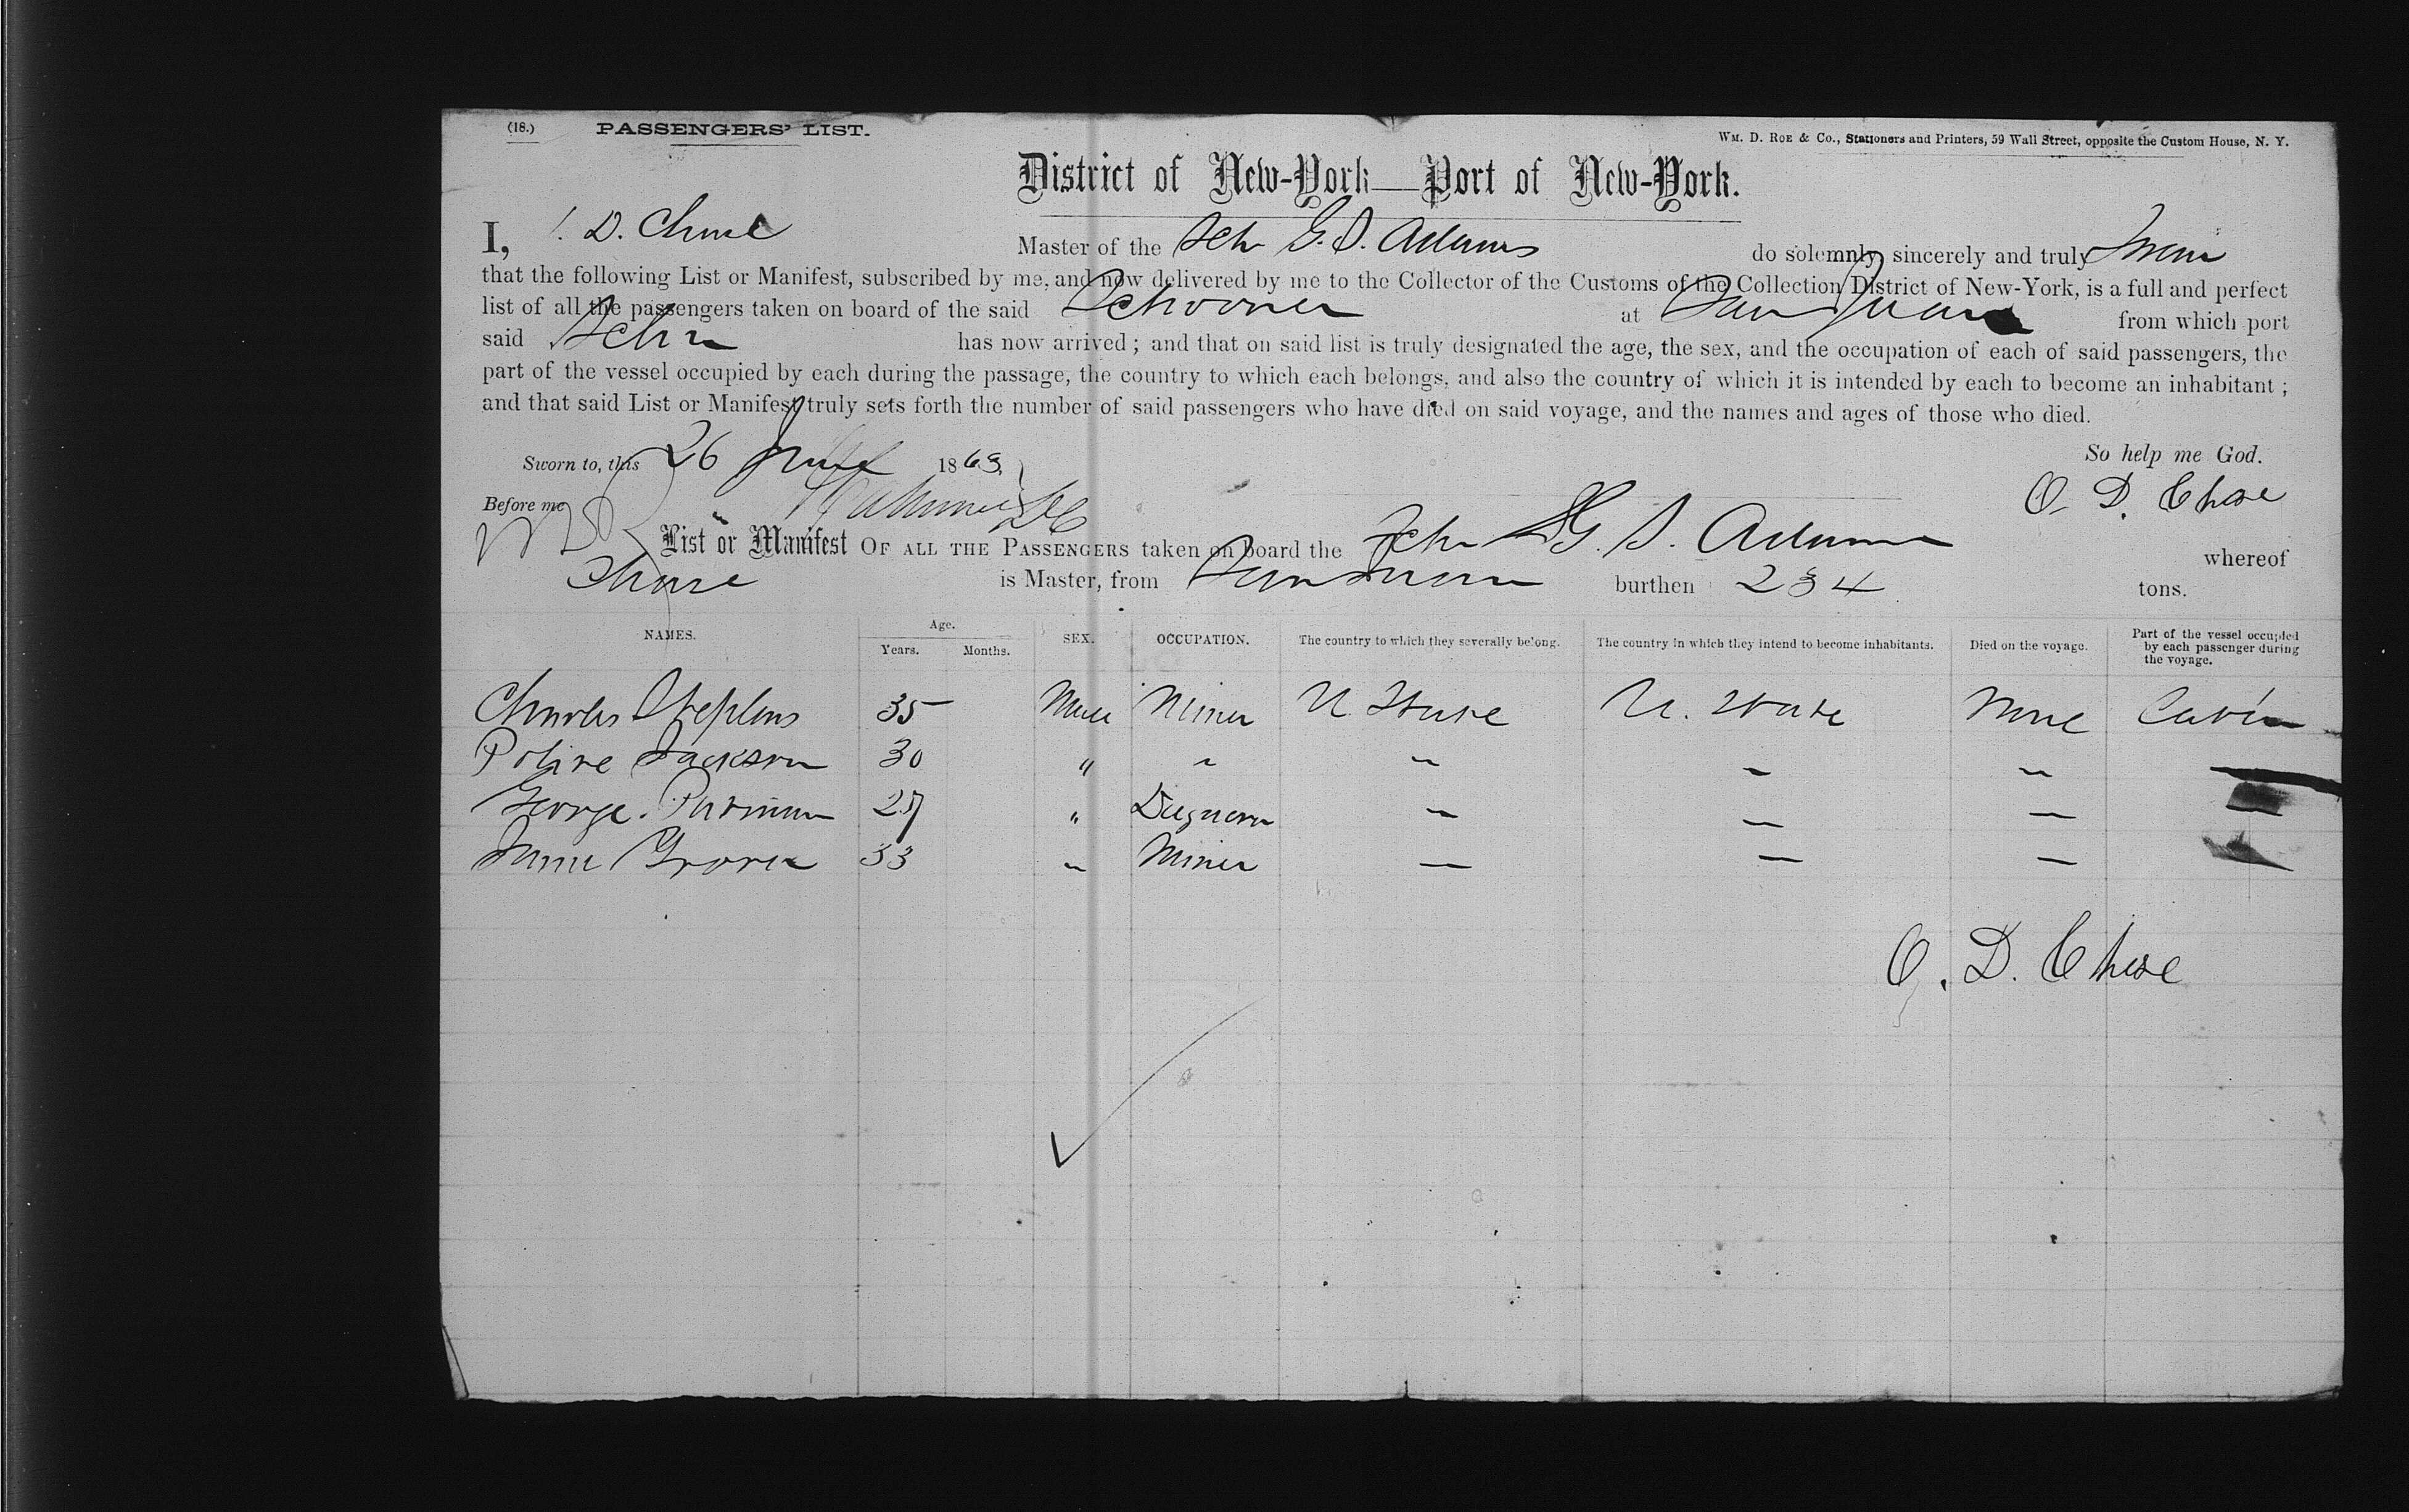 (18.) PASSENGERS' LIST.
WM. D. ROE & Co., Stationers and Printers, 59 Wall Street, opposite the Custom House, N. Y.
District of New-York—Port of New-York.
I, D. Chase Master of the Schr G. S. Adams do solemnly, sincerely and truly Swear
that the following List or Manifest, subscribed by me, and now delivered by me to the Collector of the Customs of the Collection District of New-York, is a full and perfect
list of all the passengers taken on board of the said Schooner at San Juan from which port
said Schr has now arrived; and that on said list is truly designated the age, the sex, and the occupation of each of said passengers, the
part of the vessel occupied by each during the passage, the country to which each belongs, and also the country of which it is intended by each to become an inhabitant;
and that said List or Manifest truly sets forth the number of said passengers who have died on said voyage, and the names and ages of those who died.
So help me God.
Sworn to, this 26 June 1863
O. D. Chase
Before me
List or Manifest OF ALL THE PASSENGERS taken on board the Schr G. S. Adams whereof
Chase is Master, from San Juan burthen 234 tons.
NAMES. Age. Years. Months. SEX. OCCUPATION. The country to which they severally belong. The country in which they intend to become inhabitants. Died on the voyage. Part of the vessel occupied by each passenger during the voyage.
Charles Stephens 35 Male Miner U. State U. State None Cabin
Jackson 30 " " " " "
George Putnam 27 " — — —
Grover 33 " Miner — — —
O. D. Chase